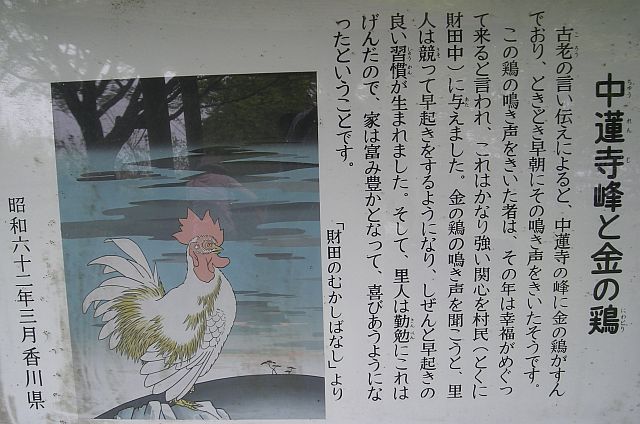 中蓮寺峰と金の鶏
古老の言い伝えによると、中蓮寺の峰に金の鶏がすん
でおり、ときどき早朝にその鳴き声をきいたそうです。
この鶏の鳴き声をきいた者は、その年は幸福がめぐっ
て来ると言われ、これはかなり強い関心を村民（とくに
財田中）に与えました。金の鶏の鳴き声を聞こうと、里
人は競って早起きをするようになり、しぜんと早起きの
良い習慣が生まれました。そして、里人は勤勉にこれは
げんだので、家は富み豊かとなって、喜びあうようにな
ったということです。
「財田のむかしばなし」より
昭和六十二年三月香川県